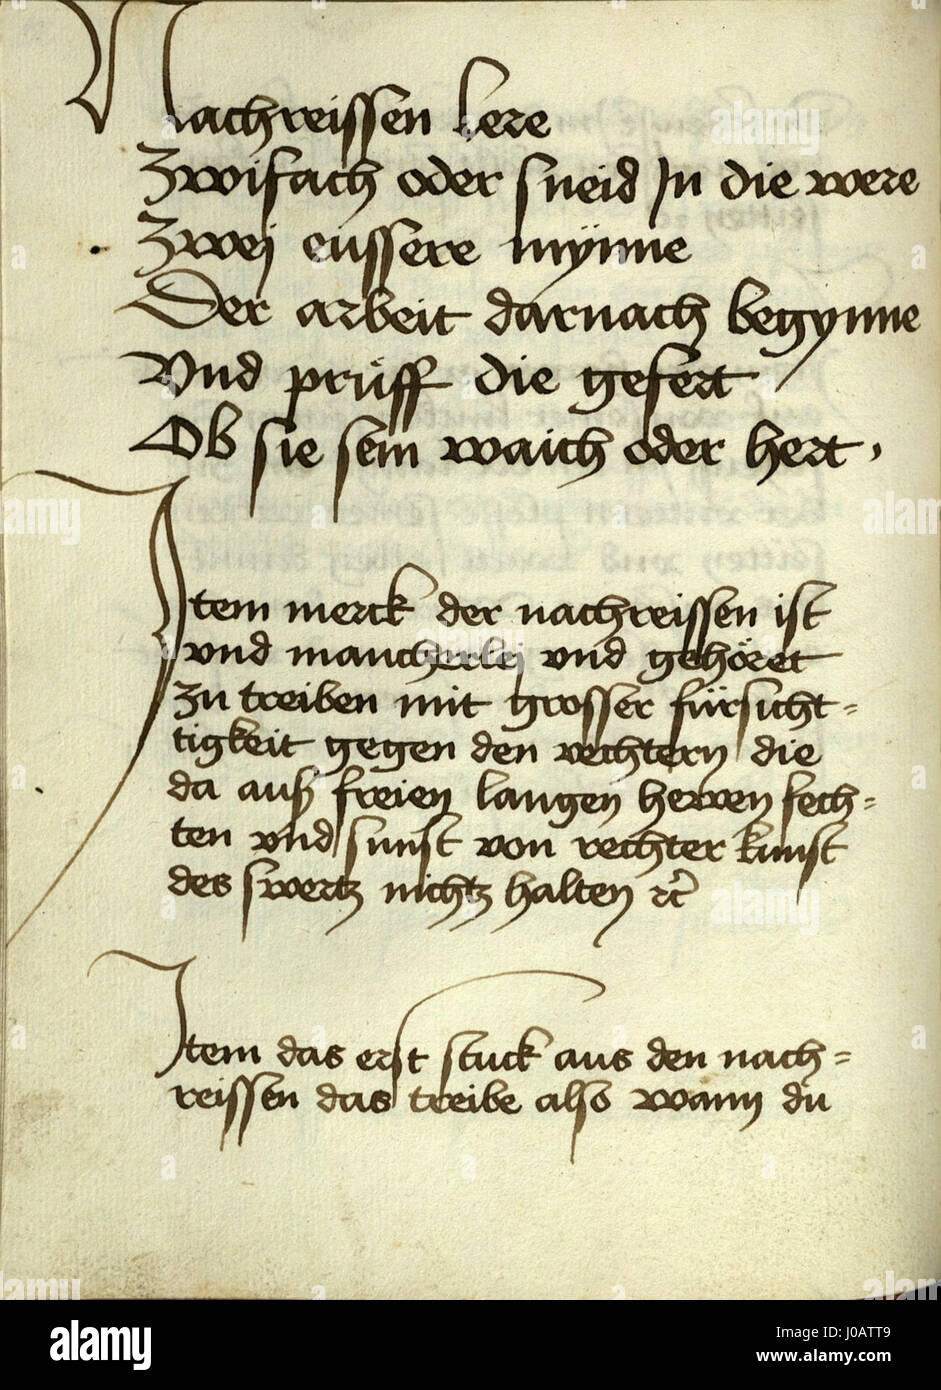 Nachreissen lere
Zwifach oder sneid In die were
Zwej eüssere mÿnne
Der arbeit darnach begynne
Vnd prüff die gefert
Ob sie sein waich oder hert,
Item merck der nachreissen ist
vnd mancherlej vnd gehöret
zu treiben mit grosser fürsicht=
tigkeit gegen den vechtern die
da auß freien langen hewen fech=
ten vnd sunst von rechter kunst
des swertz nichtz halten ꝛc̃
Item das erst stuck aus den nach=
reissen das treibe also wann du
alamy
Image ID: J0ATT9
www.alamy.com